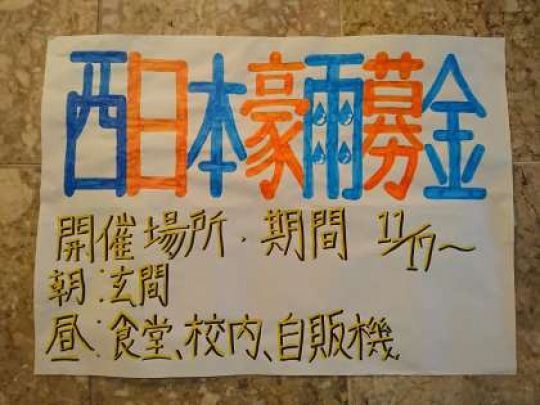 西日本豪雨募金
開催場所・期間 11/17～
朝:玄間
昼:食堂、校内、自販機、